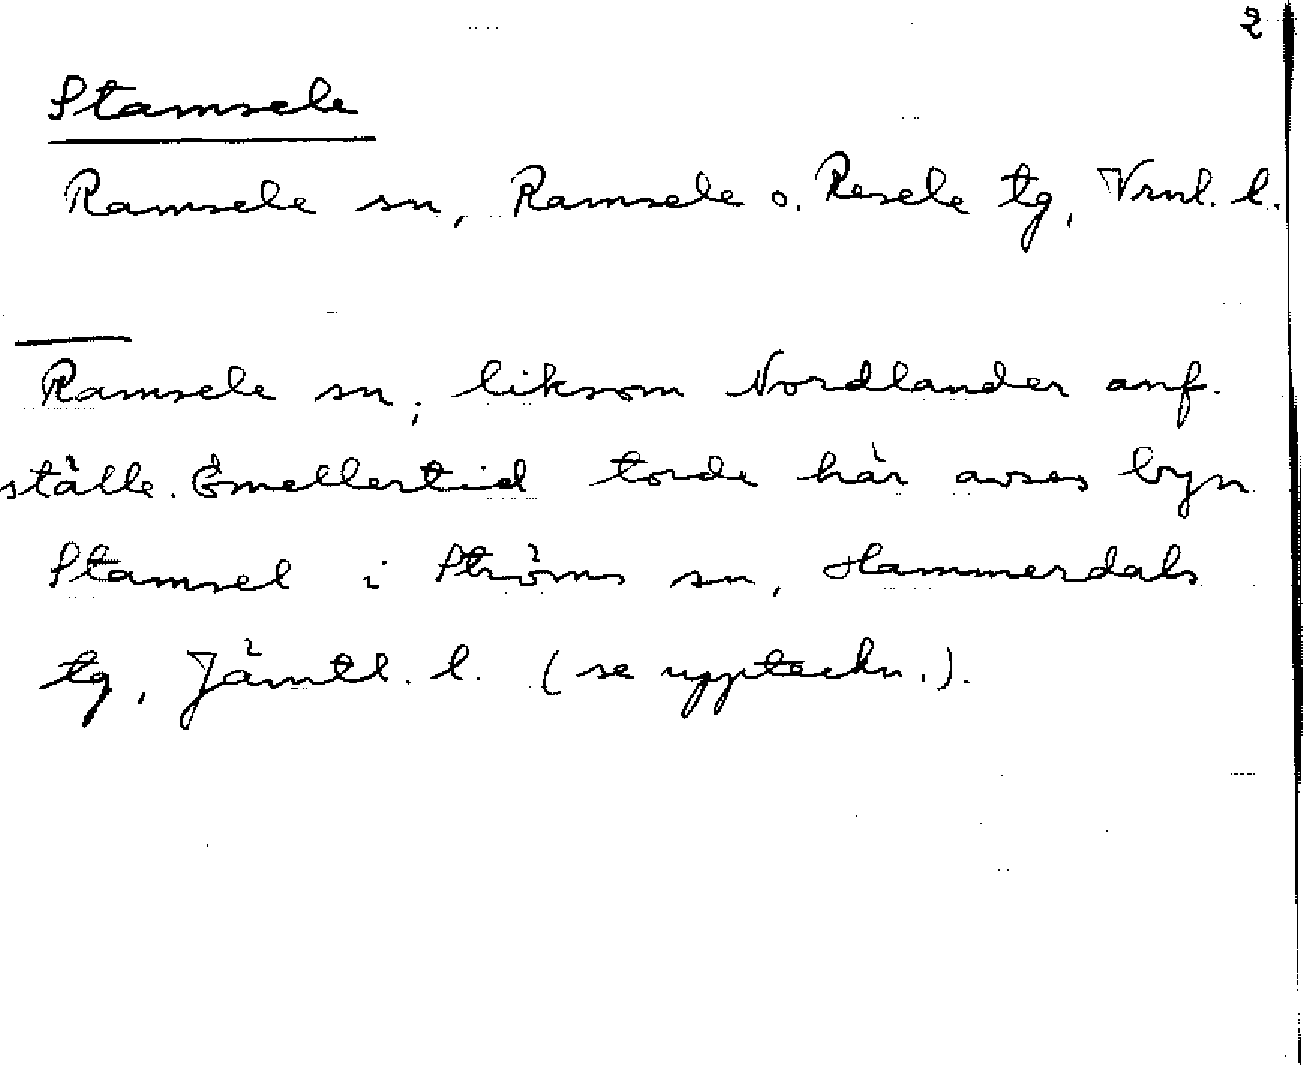 2
Stamsele
Ramsele sn, Ramsele o. Resele tg, Vrnl. l.
Ramsele sn, liksom Nordlander anf.
ställe. Emellertid torde här avses byn
Stamsel i Ströms sn, Hammerdals
tg, Jämtl. l. (se uppteckn.).